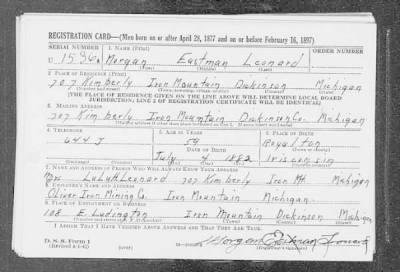 REGISTRATION CARD—(Men born on or after April 28, 1877 and on or before February 16, 1897)
SERIAL NUMBER 1. NAME (Print) ORDER NUMBER
U 1586 Morgan Eastman Leonard
(First) (Middle) (Last)
2. PLACE OF RESIDENCE (Print)
707 Kimberly Iron Mountain Dickinson Michigan
(Number and street) (Town, township, village, or city) (County) (State)
[THE PLACE OF RESIDENCE GIVEN ON THE LINE ABOVE WILL DETERMINE LOCAL BOARD
JURISDICTION; LINE 2 OF REGISTRATION CERTIFICATE WILL BE IDENTICAL]
3. MAILING ADDRESS
707 Kimberly Iron Mountain Dickinson Co. Michigan
4. TELEPHONE 5. AGE IN YEARS 6. PLACE OF BIRTH
644 J 59 Royalton
DATE OF BIRTH (Town or county)
July 4 1882 Wisconsin
(Exchange) (Number) (Mo.) (Day) (Yr.) (State or country)
7. NAME AND ADDRESS OF PERSON WHO WILL ALWAYS KNOW YOUR ADDRESS
Mrs Lulu Leonard 707 Kimberly Iron Mt. Michigan
8. EMPLOYER'S NAME AND ADDRESS
Oliver Iron Mining Co. Iron Mountain Michigan
9. PLACE OF EMPLOYMENT OR BUSINESS
108 E. Ludington Iron Mountain Dickinson Michigan
(Number and street or R. F. D. number) (Town) (County) (State)
I AFFIRM THAT I HAVE VERIFIED ABOVE ANSWERS AND THAT THEY ARE TRUE.
D. S. S. Form 1
(Revised 4-1-42) (over) Morgan Eastman Leonard
(Registrant's signature)